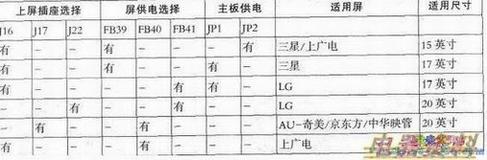 上屏插座选择 屏供电选择 主板供电 适用屏 适用尺寸
J16 J17 J22 FB39 FB40 FB41 JP1 JP2
有 — — 有 — — — 有 三星/上广电 15英寸
有 — — 有 — — 有 — 三星 17英寸
有 — — — — 有 有 — LG 17英寸
— — 有 — — 有 — — LG 20英寸
— 有 — — 有 — — — AU-奇美/京东方/中华映管 20英寸
有 — — — 有 — — — 上广电